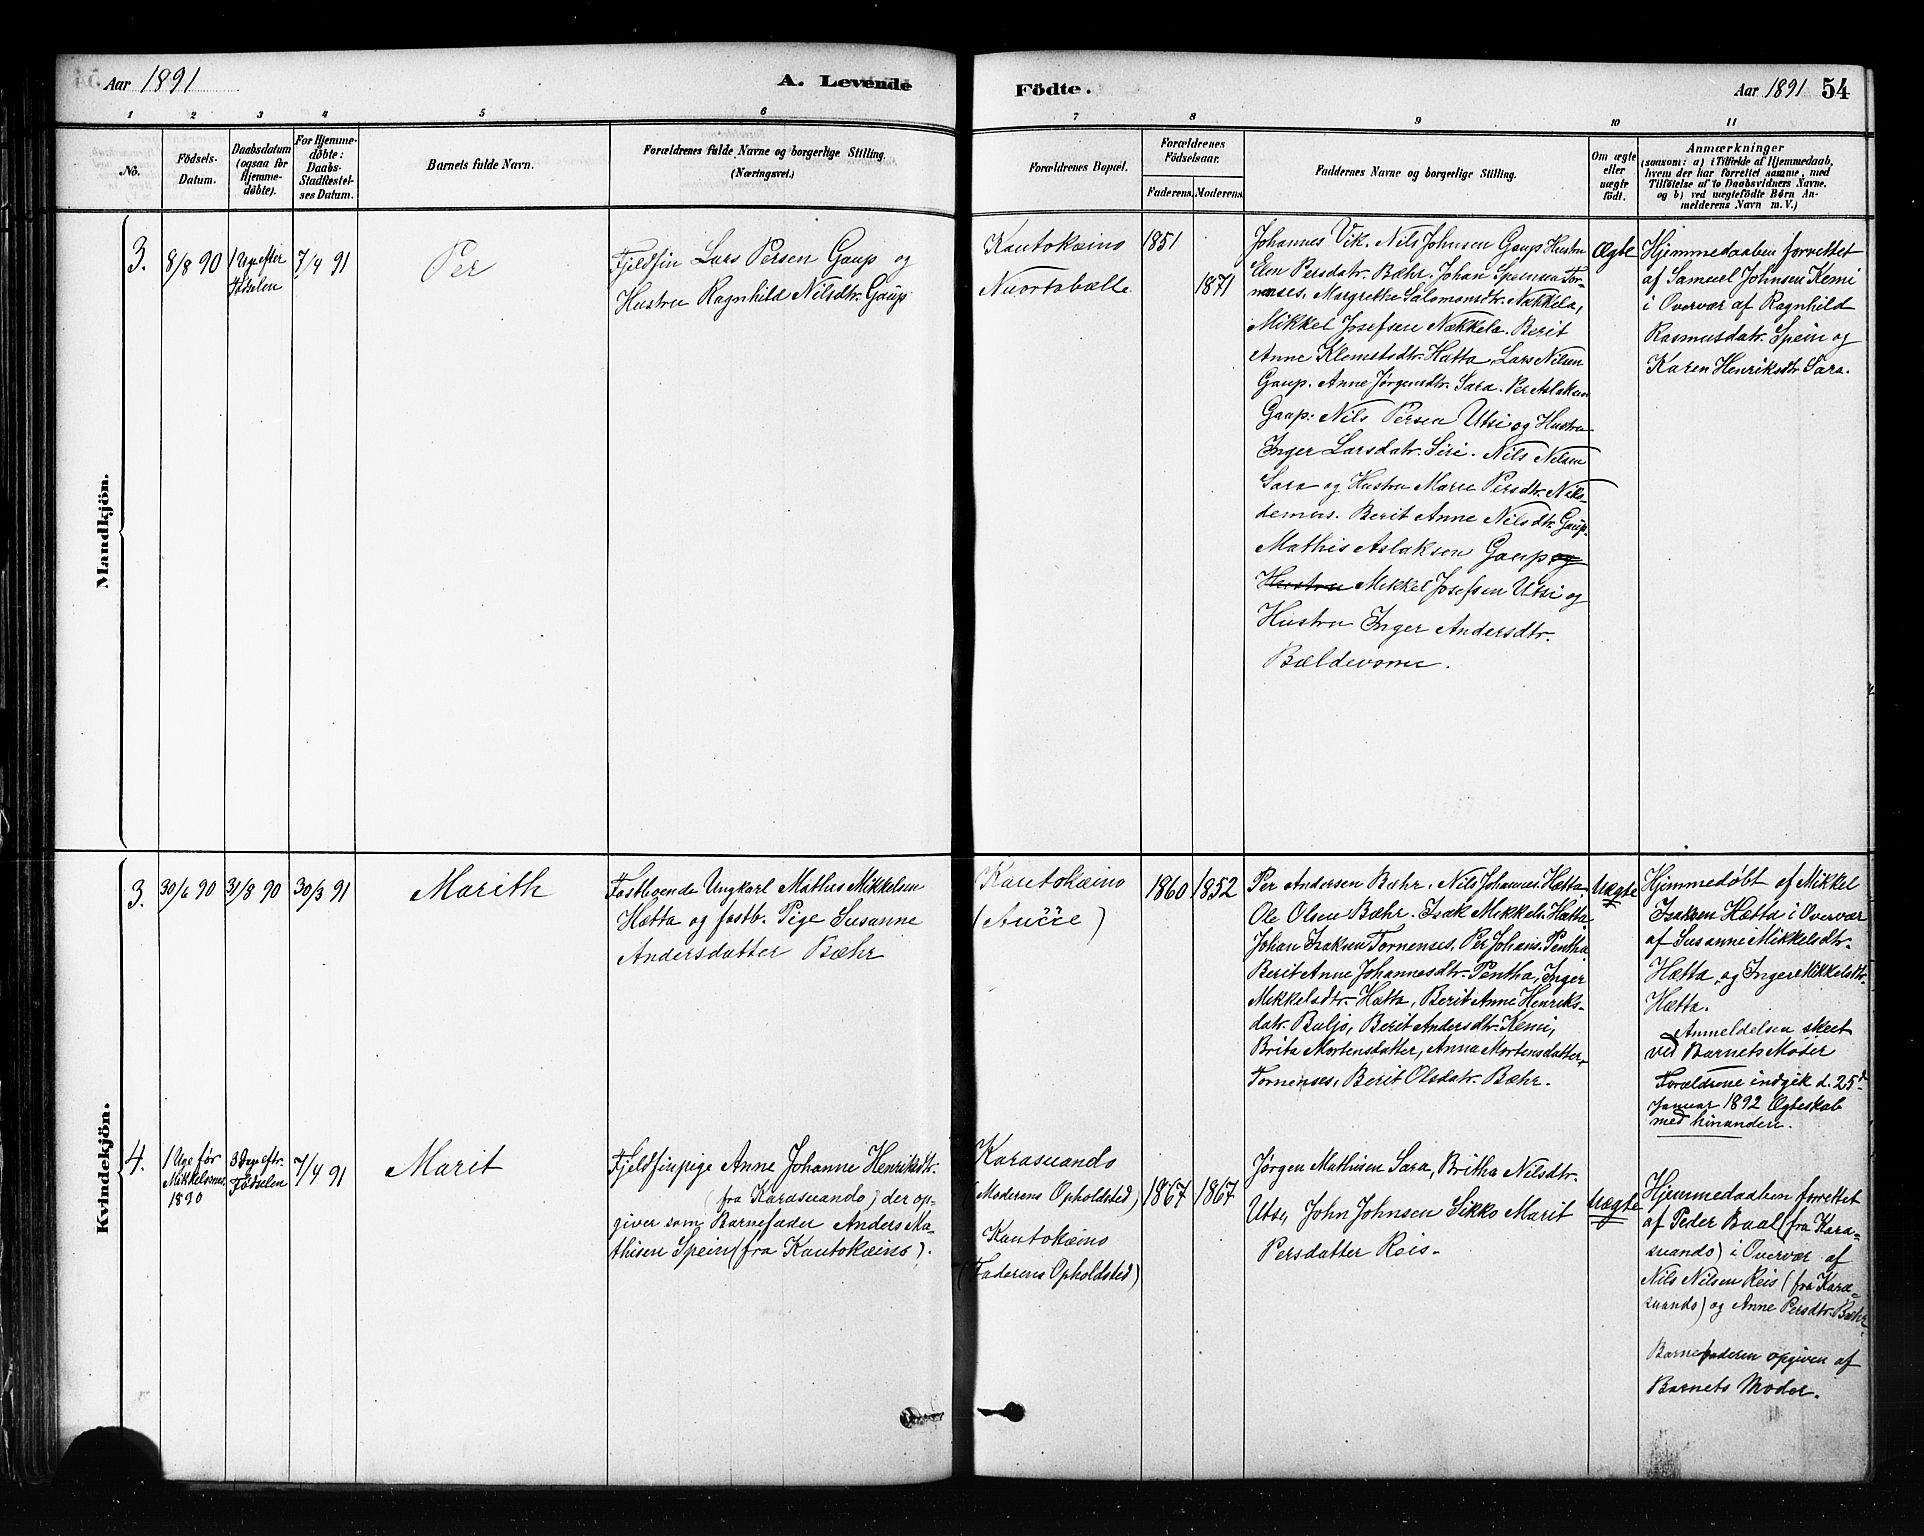 Aar 1891
A. Levende
Födte.
Aar 1891 54
1 2 3 4 5 6 7 8 9 10 11
No.
Födsels-
Datum.
Daabsdatum
(ogsaa for
Hjemme-
døbte).
For Hjemme-
døbte:
Daabs-
Stadfæstel-
ses Datum.
Barnets fulde Navn.
Forældrenes fulde Navne og borgerlige Stilling.
(Næringsvei.)
Forældrenes Bopæl.
Forældrenes
Födselsaar.
Faderens. Moderens.
Faddernes Navne og borgerlige Stilling.
Om ægte
eller
uægte
født.
Anmærkninger
(saasom: a) i Tilfælde af Hjemmedaab,
hvem der har forrettet samme, med
Tilføielse af to Daabsvidners Navne.
og b) ved uægtefödte Börn An-
melderens Navn m. V.)
Mandkjön.
3.
8/8 90
1 Uge efter
Fødselen
7/4 91
Per
Fjeldfin Lars Persen Gaup og
Hustru Ragnhild Nilsdtr. Gaup
Kautokæino
Nuortabælle
1851
1871
Johannes Vik. Nils Johnsen Gaup Hustru
Elen Persdatr. Bæhr. Johan Speinsen Tor-
nenses. Margrethe Salomonsdtr. Nækkela,
Mikkel Josefsen Nækkela. Berit
Anne Klemetsdtr. Hætta, Lars Nilsen
Gaup. Anne Jørgensdtr. Sara. Per Aslaksen
Gaup. Nils Persen Utsi og Hustru
Inger Larsdatr. Siri. Nils Nilsen
Sara og Hustru Marie Persdtr. Niko-
demus. Berit Anne Nilsdtr. Gaup.
Mathis Aslaksen Gaup og
Hustru Mikkel Josefsen Utsi og
Hustru Inger Andersdtr.
Bældevome.
Ægte
Hjemmedaaben forrettet
af Samuel Johnsen Kemi
i Overvær af Ragnhild
Rasmusdatr. Spein og
Karen Henriksdtr. Sara.
Kvindekjön.
3.
30/6 90
31/8 90
30/3 91
Marith
Fastboende Ungkarl Mathis Mikkelsen
Hætta og fastb. Pige Susanne
Andersdatter Bæhr
Kautokæino
(Aučče)
1860
1852
Per Andersen Bæhr, Nils Johannes. Hætta
Ole Olsen Bæhr. Isak Mikkels. Hætta,
Johan Isaksen Tornenses, Per Johans. Pentha
Berit Anne Johannesdtr. Pentha, Inger
Mikkelsdtr. Hætta, Berit Anne Henriks-
datr. Buljo, Berit Andersdtr. Kemi,
Brita Mortensdatter, Anna Mortensdatter
Tornenses, Berit Olsdatr. Bæhr.
Uægte
Hjemmedøbt af Mikkel
Isaksen Hætta i Overvær
af Susanne Mikkelsdtr.
Hætta, og Inger Mikkelsdtr.
Hætta.
Anmeldelsen skeet
ved Barnets Moder
Forældrene indgik d. 25de
Januar 1892 Ægteskab
med hinanden.
4.
1 Uge før
Mikkelsmes
1890
3 Dage eftr.
Fødselen
7/4 91
Marit
Fjeldfinpige Anne Johanne Henriksdtr.
(fra Karasuando) der op-
giver som Barnefader Anders Ma-
thisen Spein (fra Kautokæino).
Karasuando
(Moderens Opholdsted)
Kautokæino
(Faderens Opholdsted)
1867
1867
Jørgen Mathisen Sara, Britha Nilsdtr.
Utsi, John Johnsen Sikko Marit
Persdatter Reis.
Uægte
Hjemmedaaben forrettet
af Peder Baal (fra Kara-
suando) i Overvær af
Nils Nilsen Reis (fra Kara-
suando) og Anne Persdtr. Bæhr.
Barnefaderen opgiven af
Barnets Moder.